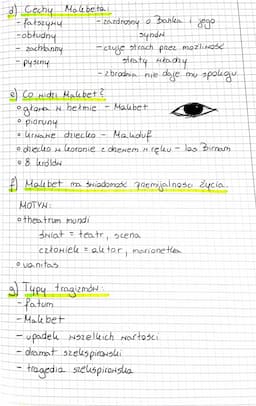 d) Cechy Makbeta:
- fałszywy
- zazdrosny o Banka i jego synów
- obłudny
- zachłanny
- czuje strach przez możliwość straty władzy
- pyszny
- zbrodnia nie daje mu spokoju
e) Co widzi Makbet?
° głowa w hełmie - Makbet
° pioruny
° krwawe dziecko - Makduf
° dziecko w koronie z drzewem w ręku - las Birnam
° 8 królów
f) Makbet ma świadomość przemijalności życia.
MOTYW:
° theatrum mundi
świat = teatr, scena
człowiek = aktor, marionetka
° vanitas
g) Typy tragizmów:
- fatum
- Makbet
- upadek wszelkich wartości
- dramat szekspirowski
- tragedia szekspirowska